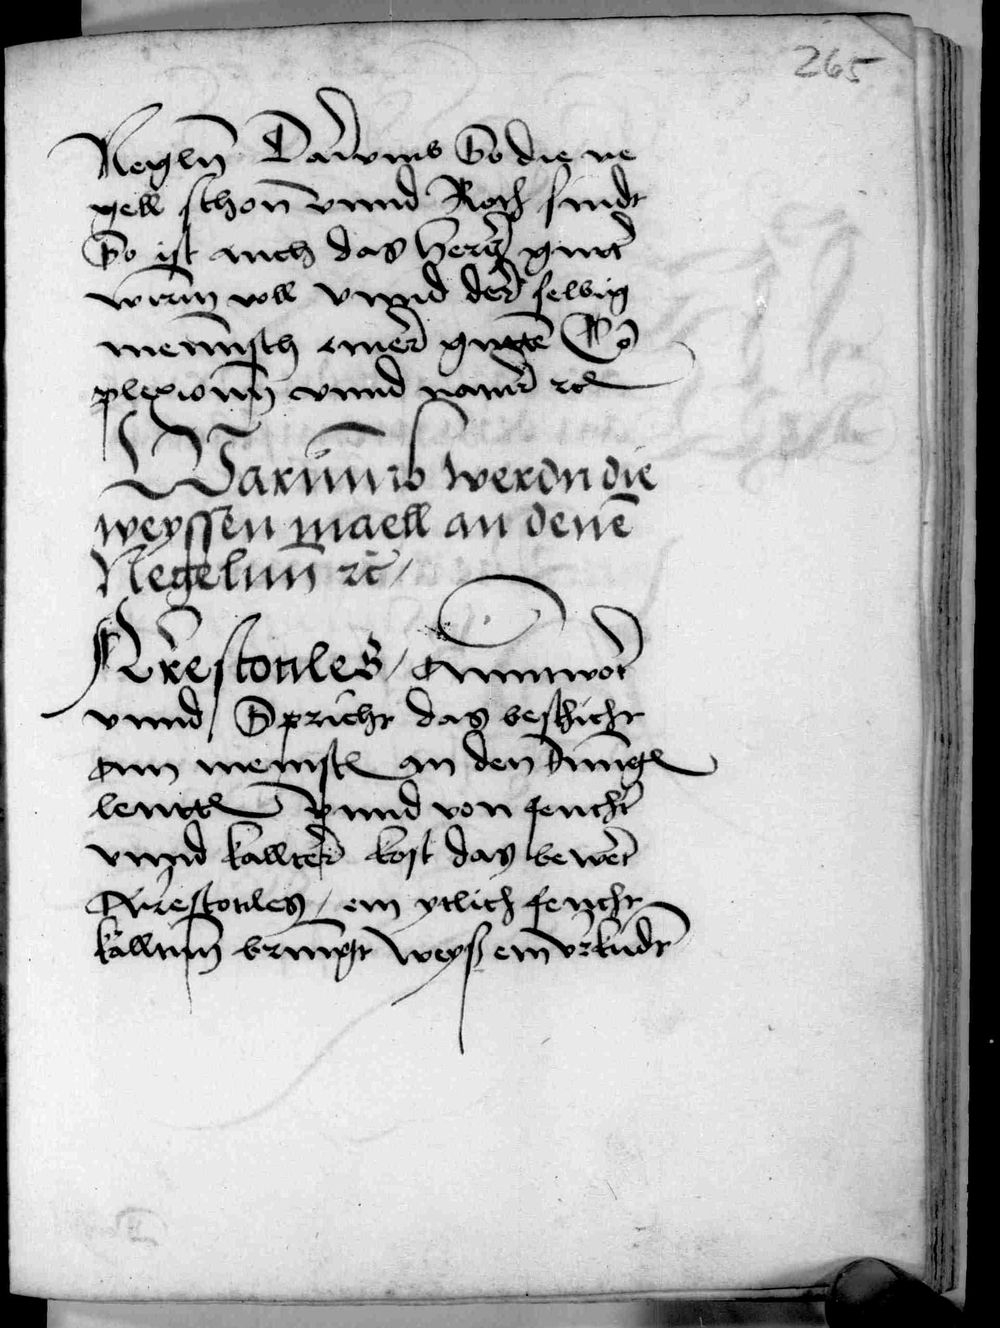 265
Neglñ Darumb So die ne
gell schon vnnd Roth sindt
So ist auch das hertz guet
warm voll vnnd der selbig
mennsch einer gutten Cō
plexionn vnnd natur ꝛc
Warumb werdn die
weyssen maell an denē
Negelnn ꝛc
Arestotiles / anntwort
vnnd Spricht das beschicht
am meinstn an den Jungn
leuttn Vnnd von feucht
vnnd kallter kost das bewert
Arestotiles / ein ytlich feucht
kalltinn bringt weyß ein vrkundt